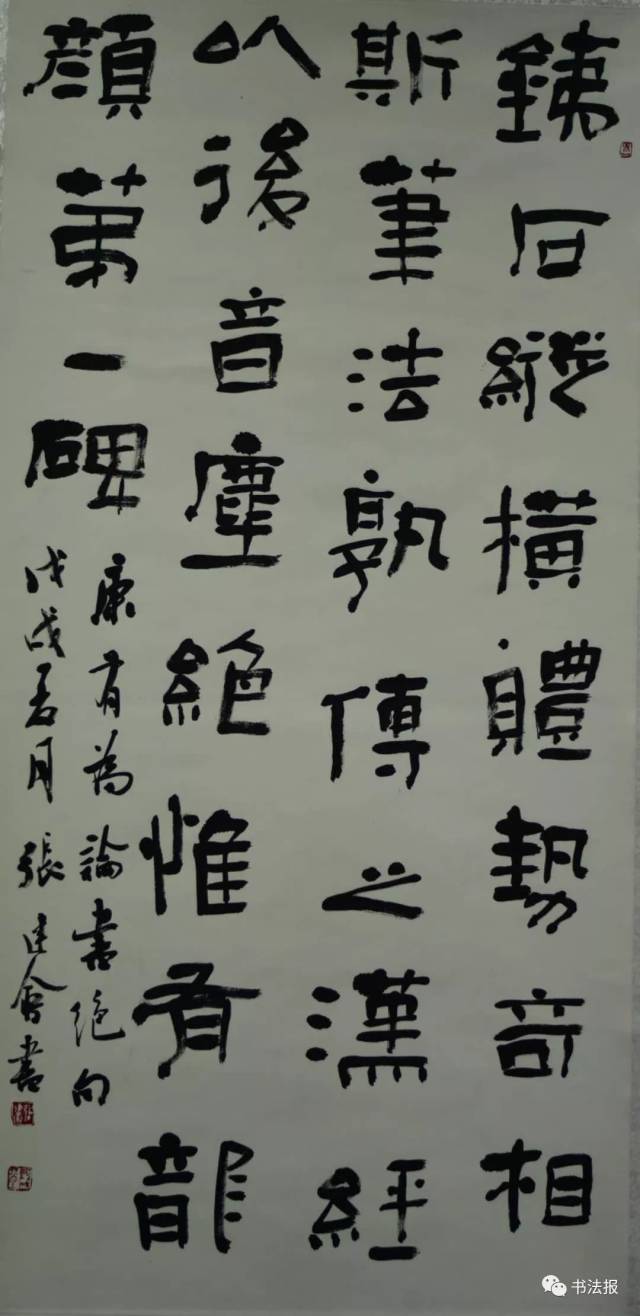 銕石縱橫體勢奇相
斯筆法孰傳之漢經
以後音塵絕惟有龍
顏第一碑
康有為論書絕句
戊戌月 張建會書
书法报